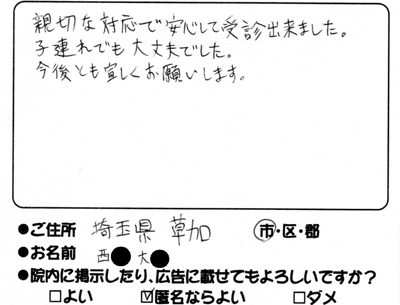 親切な対応で安心して受診出来ました。
子連れでも大丈夫でした。
今後とも宜しくお願いします。
●ご住所 埼玉県 草加 市・区・郡
●お名前 西● 大●
●院内に掲示したり、広告に載せてもよろしいですか?
□よい ☑匿名ならよい □ダメ